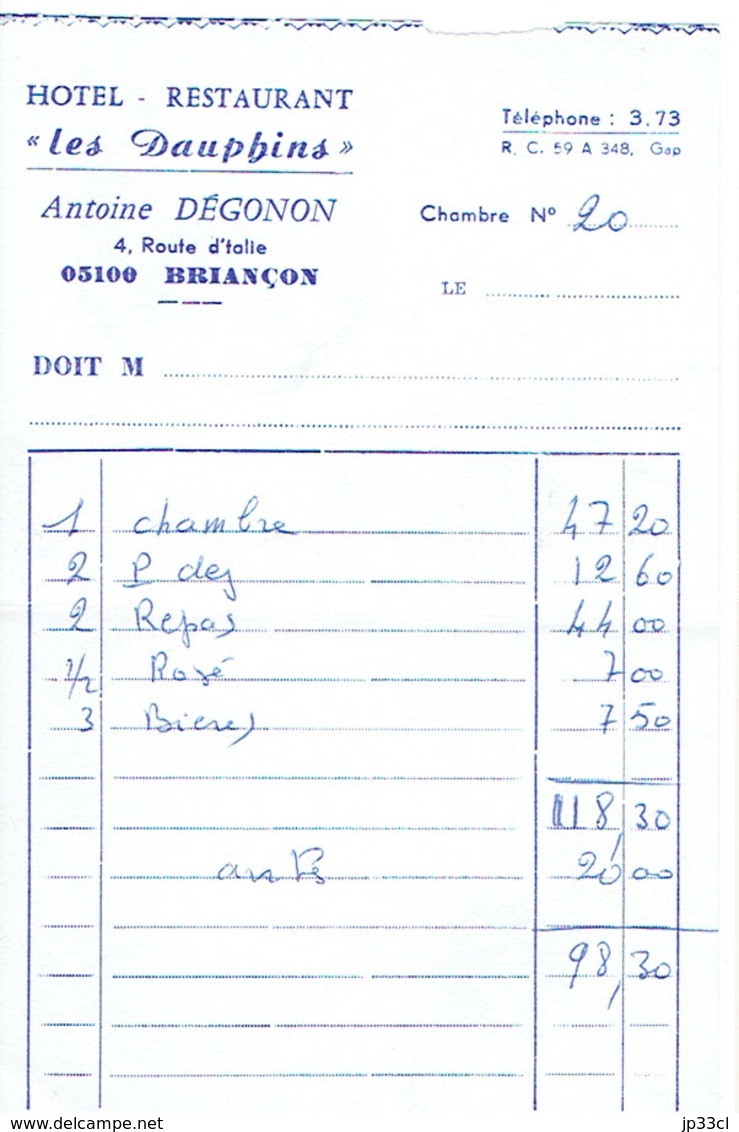 HOTEL - RESTAURANT
« les Dauphins »
Antoine DÉGONON
4, Route d'talie
05100 BRIANÇON
Téléphone : 3.73
R. C. 59 A 348, Gap
Chambre N° 20
LE
DOIT M
1 chambre 47 20
2 P dej 12 60
2 Repas 44 00
1/2 Rosé 7 00
3 Bieres 7 50
118,30
20 00
98,30
delcampe.net
jp33cl